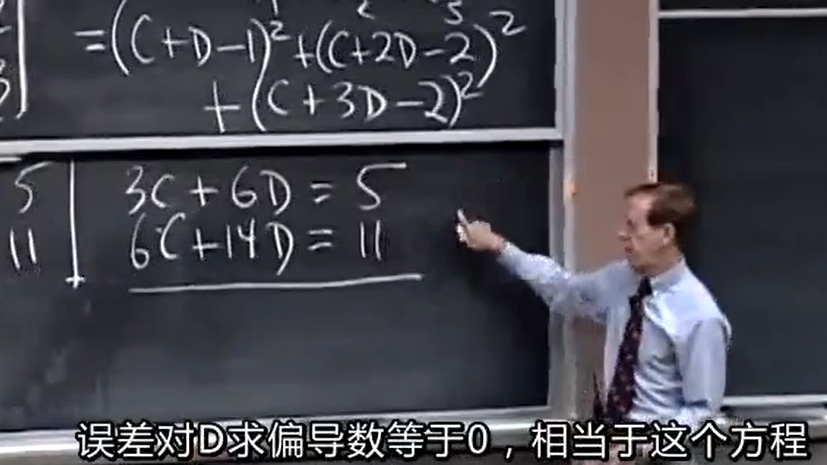 1 2 3
=(C+D-1)²+(C+2D-2)²
+(C+3D-2)²
5 | 3C+6D=5
11 | 6C+14D=11
误差对D求偏导数等于0，相当于这个方程